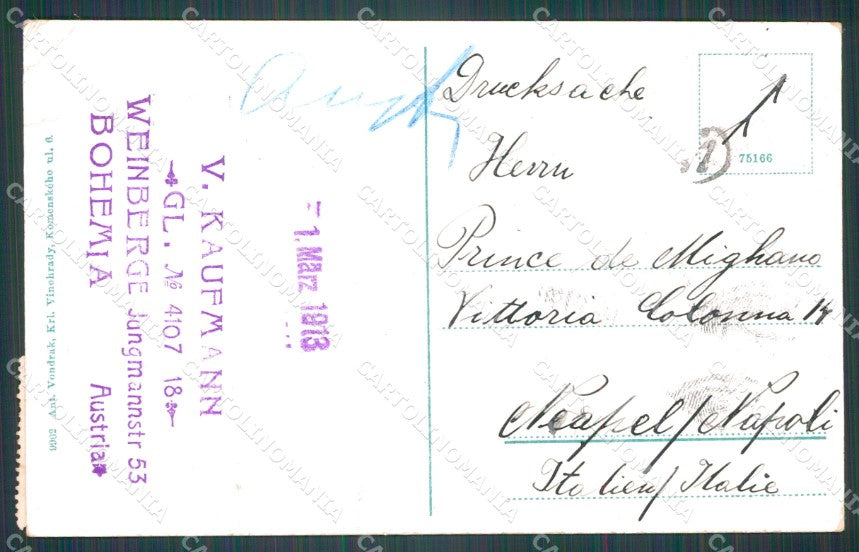 9962 Ant. Vondrak, Krl. Vinohrady, Komenského ul. 6.
V. KAUFMANN
GL. No 4107 18
WEINBERGE Jungmannstr 53
BOHEMIA Austria
1. März 1913
Drucksache
75166
Herrn
Prince de Mighano
Vittoria Colonna 14
Neapel/Napoli
Italien/Italie
CARTOLINOMANIA